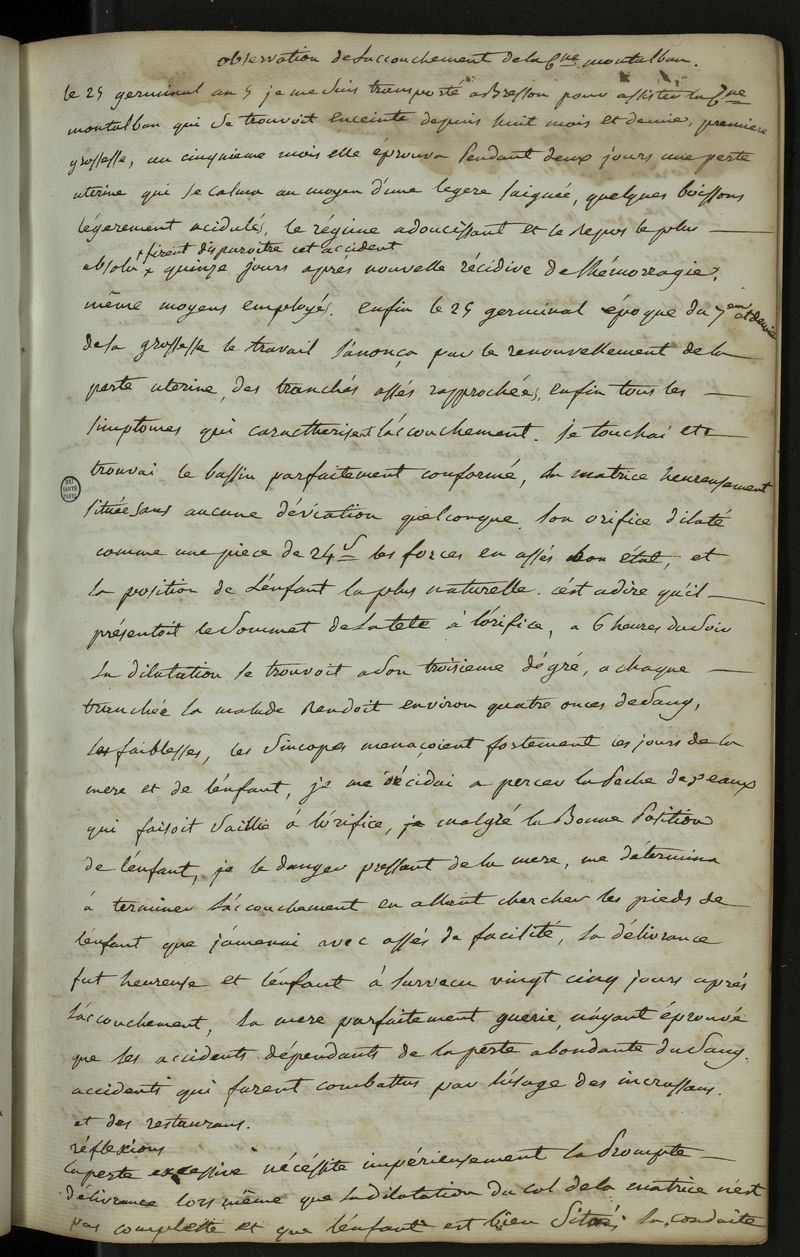 observation de l'accouchement de la C.ne montalban.
le 25 germinal an 5 je me suis transporté a Bresson pour assister la C.ne
montalban qui se trouvoit enceinte depuis huit mois et demie, premiere
grossesse, au cinquieme mois elle éprouva pendant deux jours une perte
uterine qui se calma au moyen d'une legere saignée, quelques boissons
légerement acidulés, le régime adoucissant et le repos le plus
+ firent disparoitre cet accident
absolu + quinze jours aprés nouvelle récidive de l'hémorragie,
même moyens employés. enfin le 25 germinal époque du 7em et demie
de sa grossesse le travail s'anonça par le renouvellement de la
perte uterine, des tranchés assés rapprochées, enfin tous les
simptomes qui caractherisent l'accouchement. je touchai et
trouvai le bassin parfaitement conformé, la matrice heureusement
située sans aucune déviation quelconque, son orifice dilaté
comme une piece de 24 s les forces en assés bon état, et
la position de l'enfant la plus naturelle. c'est adire qu'il
présentoit le sommet de la tete à l'orifice, a 6 heures du soir
la dilatation se trouvoit a son troisieme dégré, a chaque
tranchée la malade rendoit environ quatre onces de sang,
les faiblesses, les sincopes menaçoient fortement les jours de la
mere et de l'enfant, je me décidai a percer la poche des eaux
qui faisoit saillie á l'orifice, je malgré la bonne position
de l'enfant, je le danger pressant de la mere, me détermina
à terminer l'accouchement en allant chercher les pieds de
l'enfant que j'amenai avec assés de facilité, la délivrance
fut heureuse et l'enfant á survecu vingt cinq jours aprés
l'accouchement, la mere parfaitement guerie, n'ayant éprouvé
que les accidents dépendants de la perte abondante du sang.
accidents qui furent combattus par l'usage des incrassans.
et des restaurans.
réflexions
la perte excessive nécéssite impérieusement la prompte
délivrance lors même que la dilatation du col de la matrice n'est
pas complette et que l'enfant est bien situé; la conduite